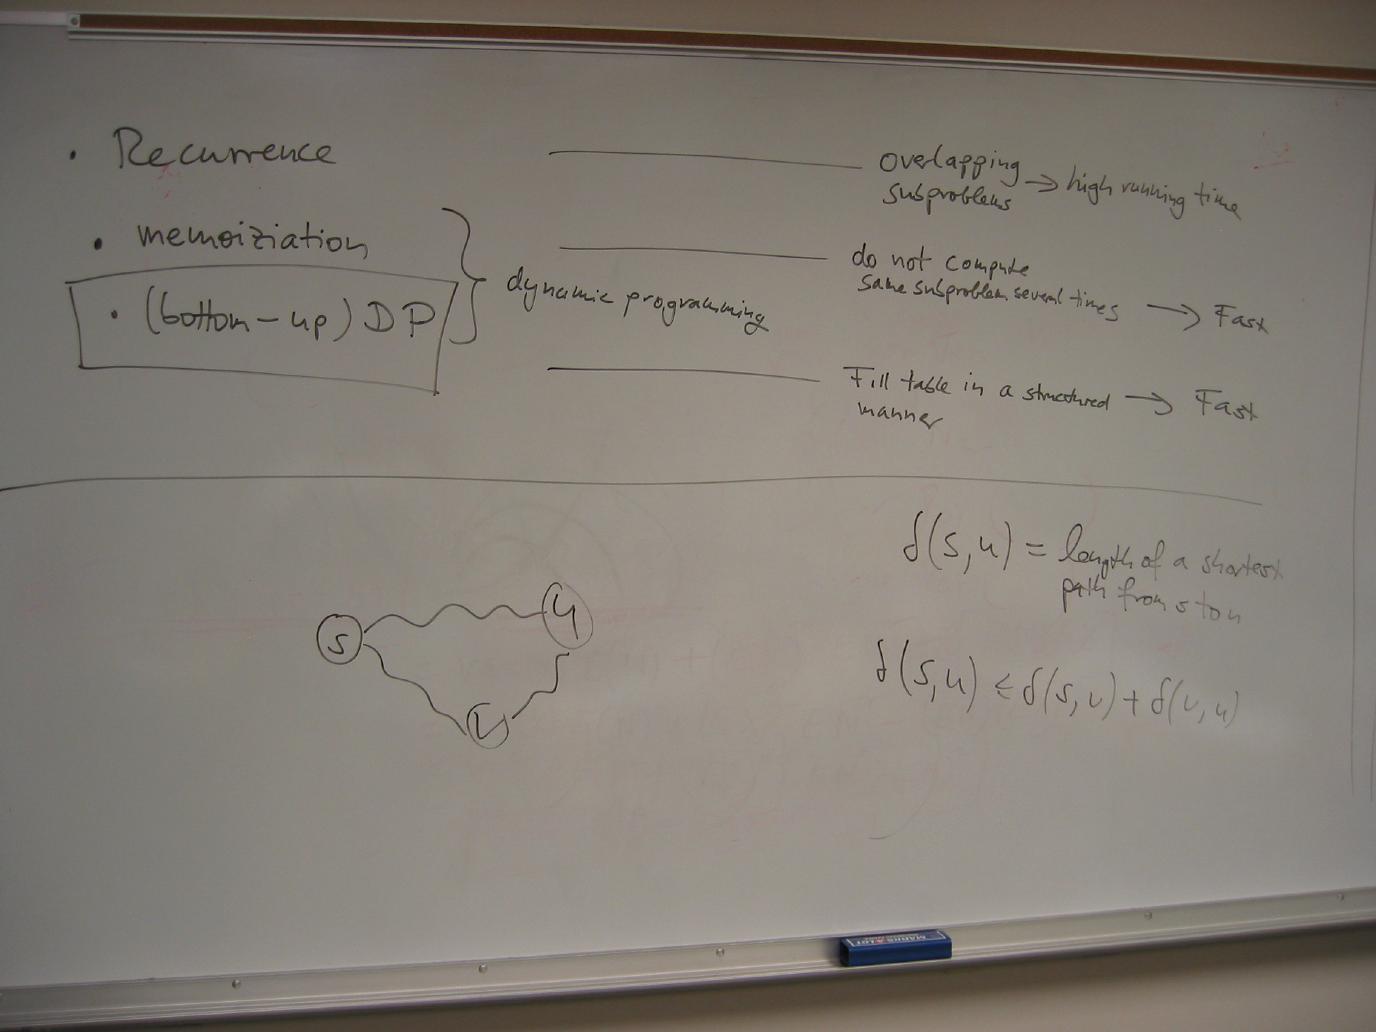 • Recurrence
overlapping
subproblems → high running time
• memoiziation
do not compute
same subproblem several times → Fast
dynamic programming
• (bottom-up) DP
Fill table in a structured → Fast
manner
δ(s,u) = length of a shortest
path from s to u
s
u
v
δ(s,u) ≤ δ(s,v) + δ(v,u)
MARKS A LOT